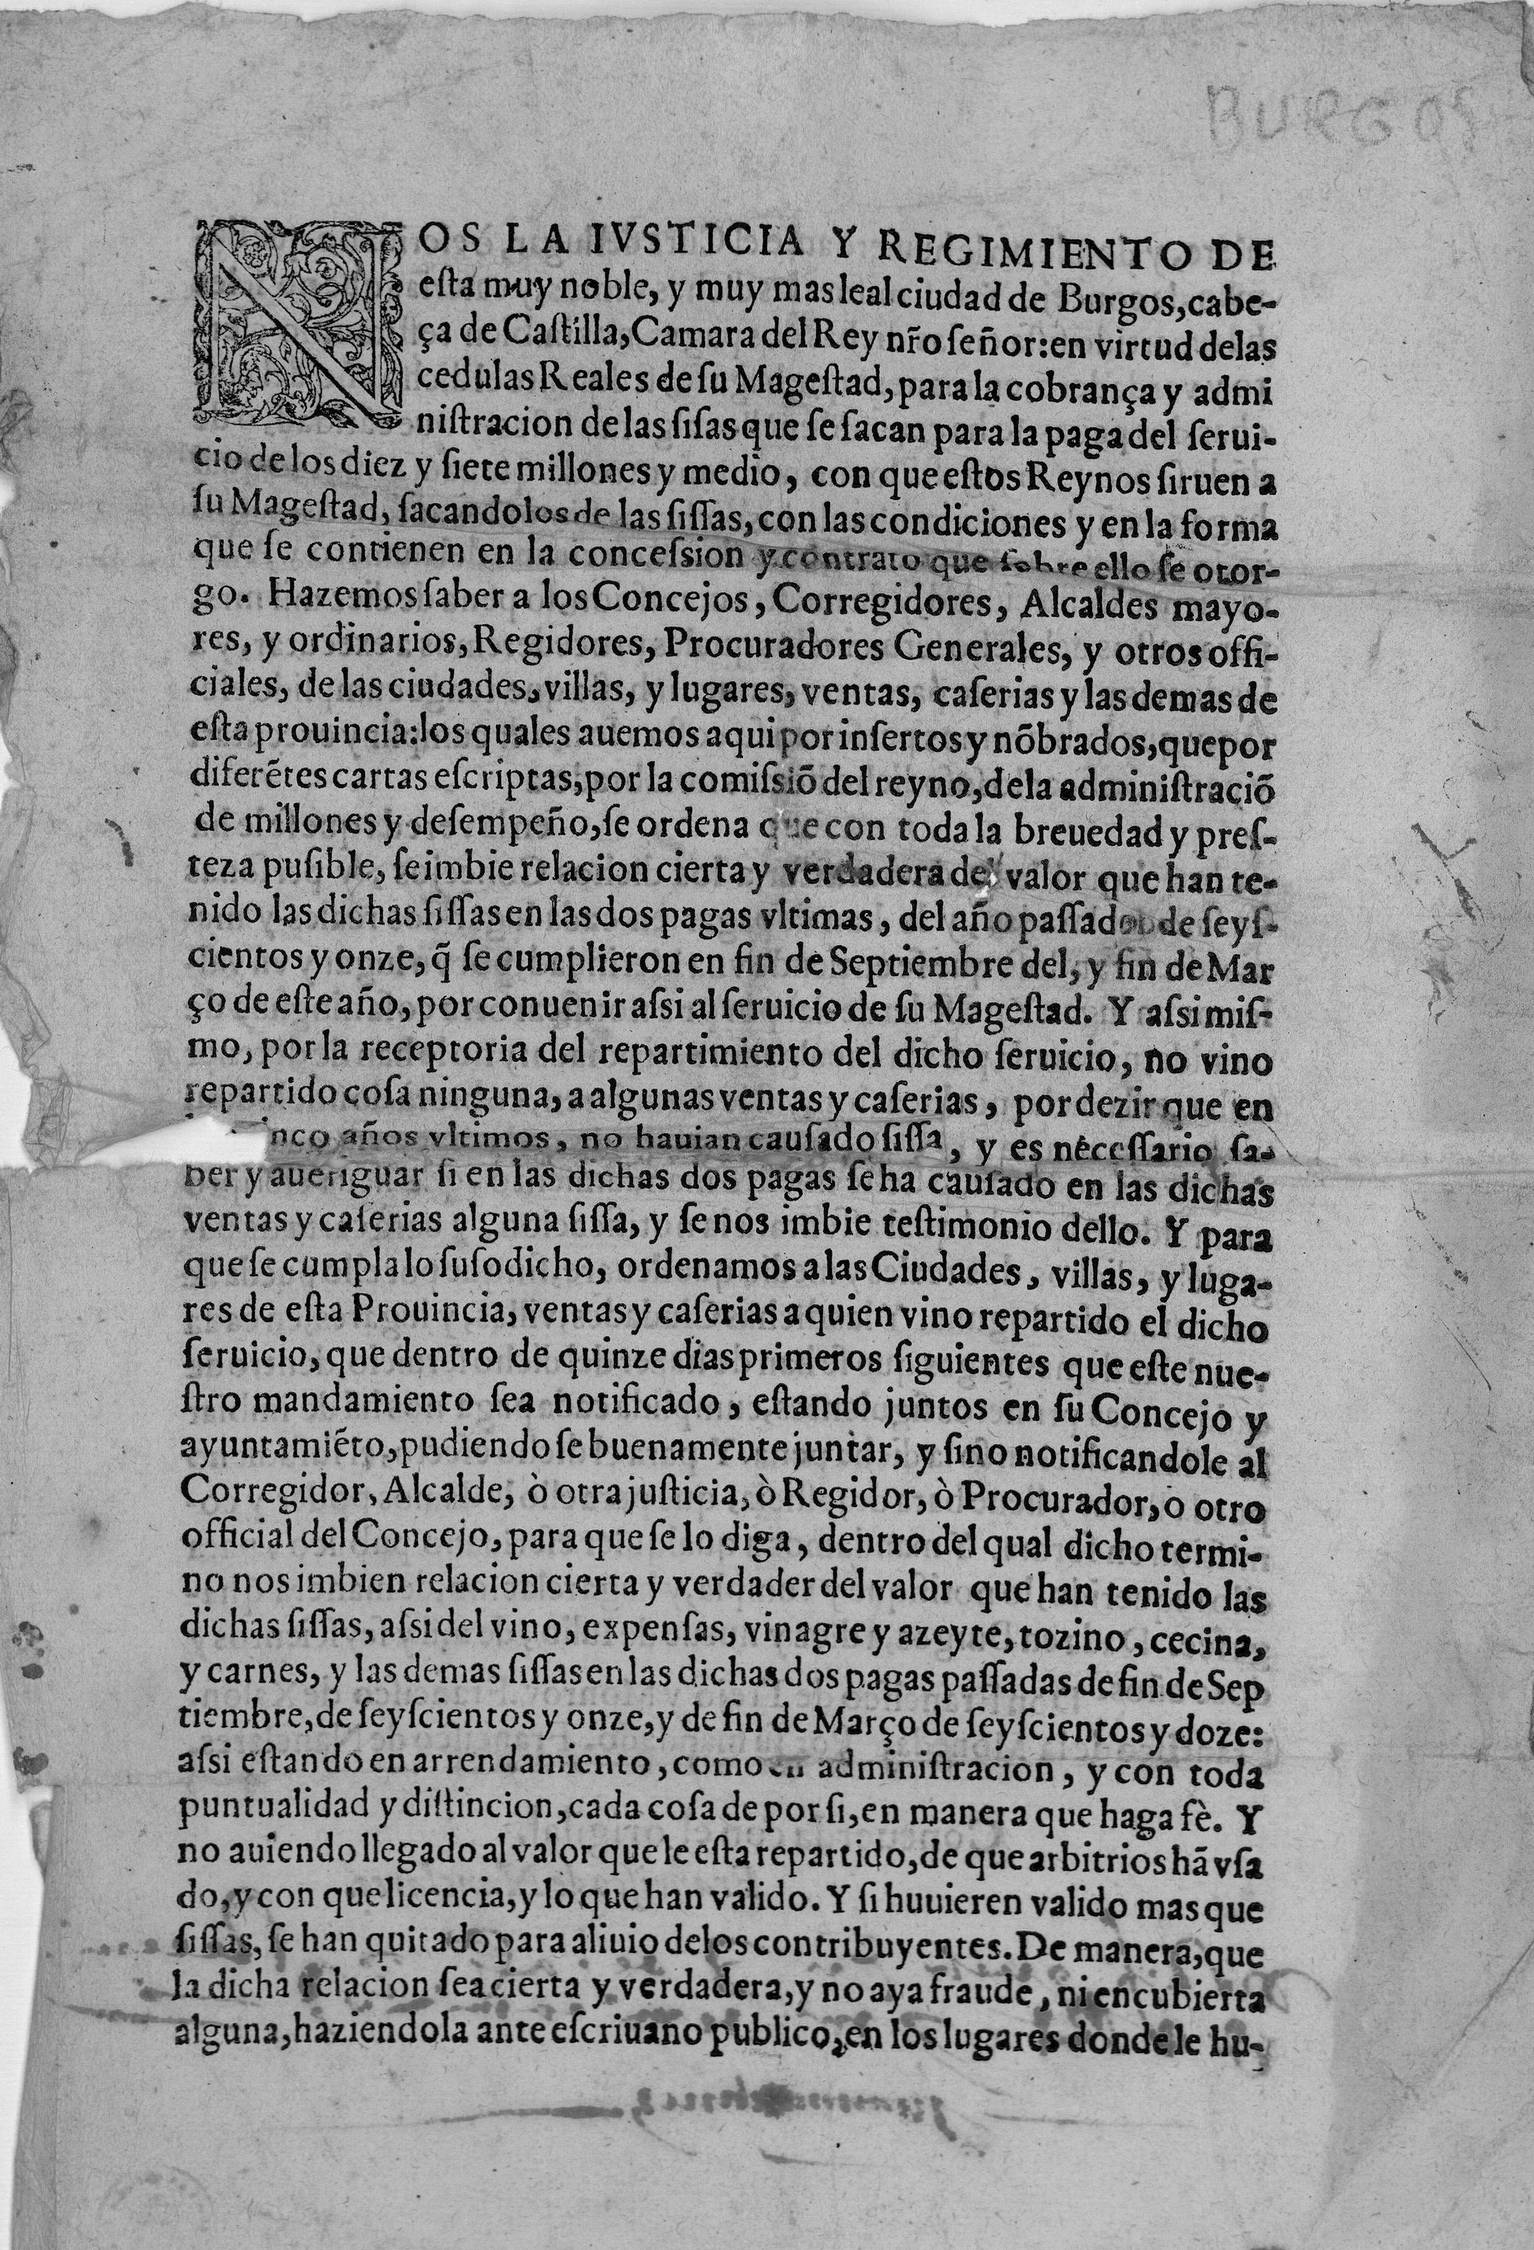 BURGOS
NOS LA IVSTICIA Y REGIMIENTO DE
esta muy noble, y muy mas leal ciudad de Burgos, cabe-
ça de Castilla, Camara del Rey nr̃o señor: en virtud de las
cedulas Reales de su Magestad, para la cobrança y admi
nistracion de las sisas que se sacan para la paga del serui-
cio de los diez y siete millones y medio, con que estos Reynos siruen a
su Magestad, sacandolos de las sissas, con las condiciones y en la forma
que se contienen en la concession y contrato que sobre ello se otor-
go. Hazemos saber a los Concejos, Corregidores, Alcaldes mayo-
res, y ordinarios, Regidores, Procuradores Generales, y otros offi-
ciales, de las ciudades, villas, y lugares, ventas, caserias y las demas de
esta prouincia: los quales auemos aqui por insertos y nõbrados, que por
diferẽtes cartas escriptas, por la comissiõ del reyno, de la administraciõ
de millones y desempeño, se ordena que con toda la breuedad y pres-
teza pusible, se imbie relacion cierta y verdadera del valor que han te-
nido las dichas sissas en las dos pagas vltimas, del año passado de seys-
cientos y onze, q̃ se cumplieron en fin de Septiembre del, y fin de Mar
ço de este año, por conuenir assi al seruicio de su Magestad. Y assi mis-
mo, por la receptoria del repartimiento del dicho seruicio, no vino
repartido cosa ninguna, a algunas ventas y caserias, por dezir que en
inco años vltimos, no hauian causado sissa, y es necessario sa-
ber y aueriguar si en las dichas dos pagas se ha causado en las dichas
ventas y caserias alguna sissa, y se nos imbie testimonio dello. Y para
que se cumpla lo susodicho, ordenamos a las Ciudades, villas, y luga-
res de esta Prouincia, ventas y caserias a quien vino repartido el dicho
seruicio, que dentro de quinze dias primeros siguientes que este nue-
stro mandamiento sea notificado, estando juntos en su Concejo y
ayuntamiẽto, pudiendose buenamente juntar, y sino notificandole al
Corregidor, Alcalde, ò otra justicia, ò Regidor, ò Procurador, o otro
official del Concejo, para que se lo diga, dentro del qual dicho termi-
no nos imbien relacion cierta y verdader del valor que han tenido las
dichas sissas, assi del vino, expensas, vinagre y azeyte, tozino, cecina,
y carnes, y las demas sissas en las dichas dos pagas passadas de fin de Sep
tiembre, de seyscientos y onze, y de fin de Março de seyscientos y doze:
assi estando en arrendamiento, como en administracion, y con toda
puntualidad y distincion, cada cosa de por si, en manera que haga fè. Y
no auiendo llegado al valor que le esta repartido, de que arbitrios hã vsa
do, y con que licencia, y lo que han valido. Y si huuieren valido mas que
sissas, se han quitado para aliuio de los contribuyentes. De manera, que
la dicha relacion sea cierta y verdadera, y no aya fraude, ni encubierta
alguna, haziendola ante escriuano publico, en los lugares donde le hu-